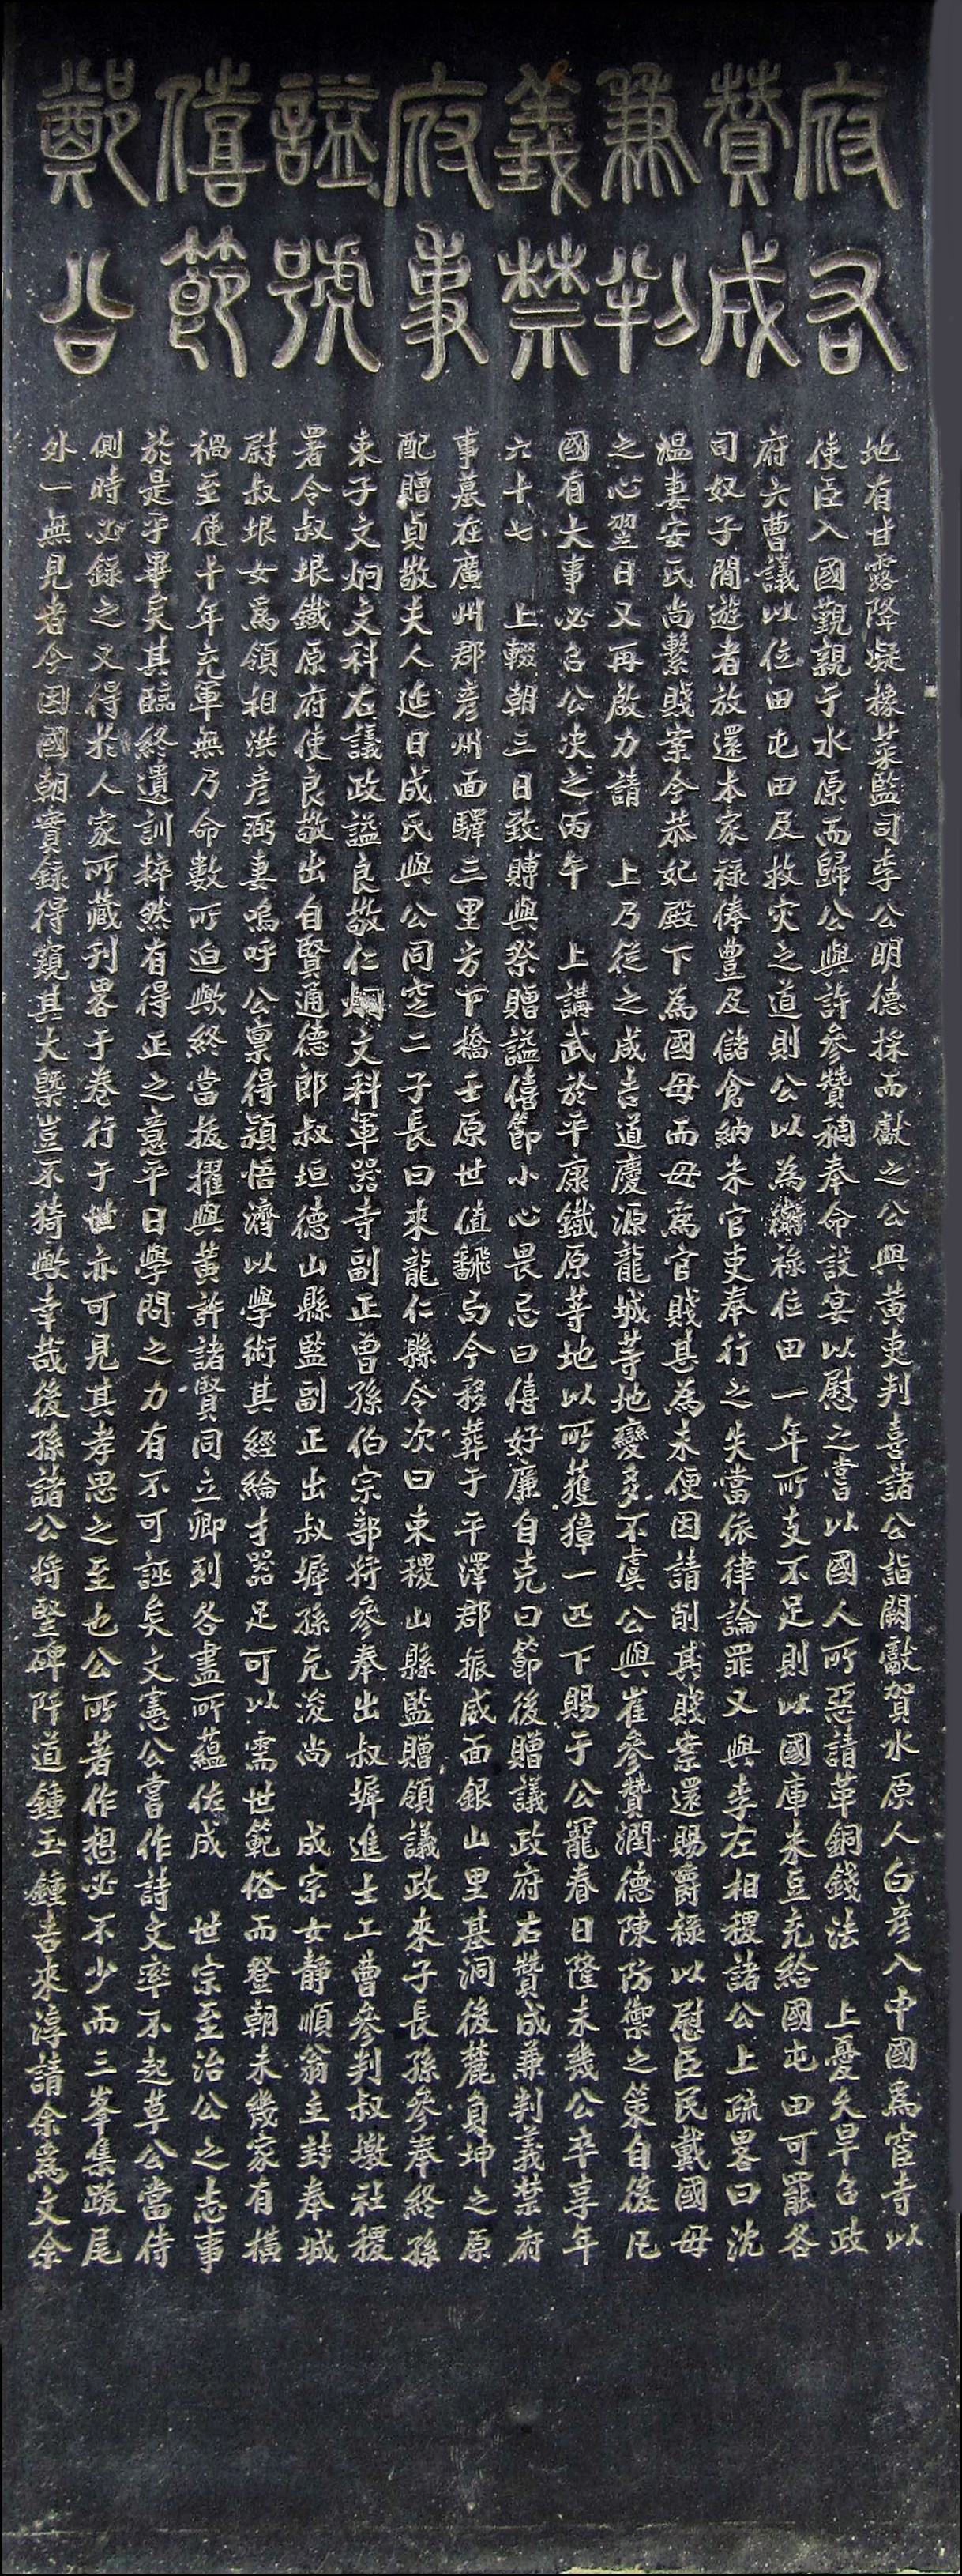 府右
贊成
兼判
義禁
府事
諡號
僖節
鄭公
地有甘露降凝橡葉監司李公明德採而獻之公與黃吏判喜諸公詣闕獻賀水原人白彦入中國爲宦寺以
使臣入國覲親于水原而歸公與許參贊稠奉命設宴以慰之嘗以國人所惡請革銅錢法 上憂久旱召政
府六曹議以位田屯田及救灾之道則公以為衙祿位田一年所支不足則以國庫米豆充給國屯田可罷各
司奴子閒遊者放還本家祿俸豊及儲倉納未官吏奉行之失當依律論罪又與李左相稷諸公上疏畧曰沈
溫妻安氏尚繫賤案今恭妃殿下為國母而母爲官賤甚為未便因請削其賤案還賜爵祿以慰臣民戴國母
之心翌日又再啟力請 上乃從之咸吉道慶源龍城等地變多不虞公與崔參贊潤德陳防禦之策自後凡
國有大事必召公决之丙午 上講武於平康鐵原等地以所獲獐一匹下賜于公寵春日隆未幾公卒享年
六十七 上輟朝三日致賻與祭贈諡僖節小心畏忌曰僖好廉自克曰節後贈議政府右贊成兼判義禁府
事墓在廣州郡彦州面驛三里方下橋壬原世值飜局今移葬于平澤郡振威面銀山里基洞後麓負坤之原
配贈貞敬夫人延日成氏與公同窆二子長曰來龍仁縣令次曰束稷山縣監贈領議政來子長孫參奉終孫
束子文炯文科右議政諡良敬仁炯文科軍器寺副正曾孫伯宗部将參奉出叔墀進士工曹參判叔墩社稷
署令叔垠鐵原府使良敬出自賢通德郎叔垣德山縣監副正出叔墀孫元浚尚 成宗女靜順翁主封奉城
尉叔垠女爲領相洪彦弼妻嗚呼公稟得頴悟濟以學術其經綸才器足可以需世範俗而登朝未幾家有橫
禍至使十年充軍無乃命數所迫歟終當拔擢與黃許諸賢同立卿列各盡所蘊佐成 世宗至治公之志事
於是乎畢矣其臨終遺訓粹然有得正之意平日學問之力有不可誣矣文憲公嘗作詩文率不起草公當侍
側時必錄之又得於人家所藏刊畧于卷行于世亦可見其孝思之至也公所著作想必不少而三峯集跋尾
外一無見者今因國朝實錄得窺其大槩豈不猗歟幸哉後孫諸公将竪碑阡道鍾玉鍾吉來淳請余爲文余